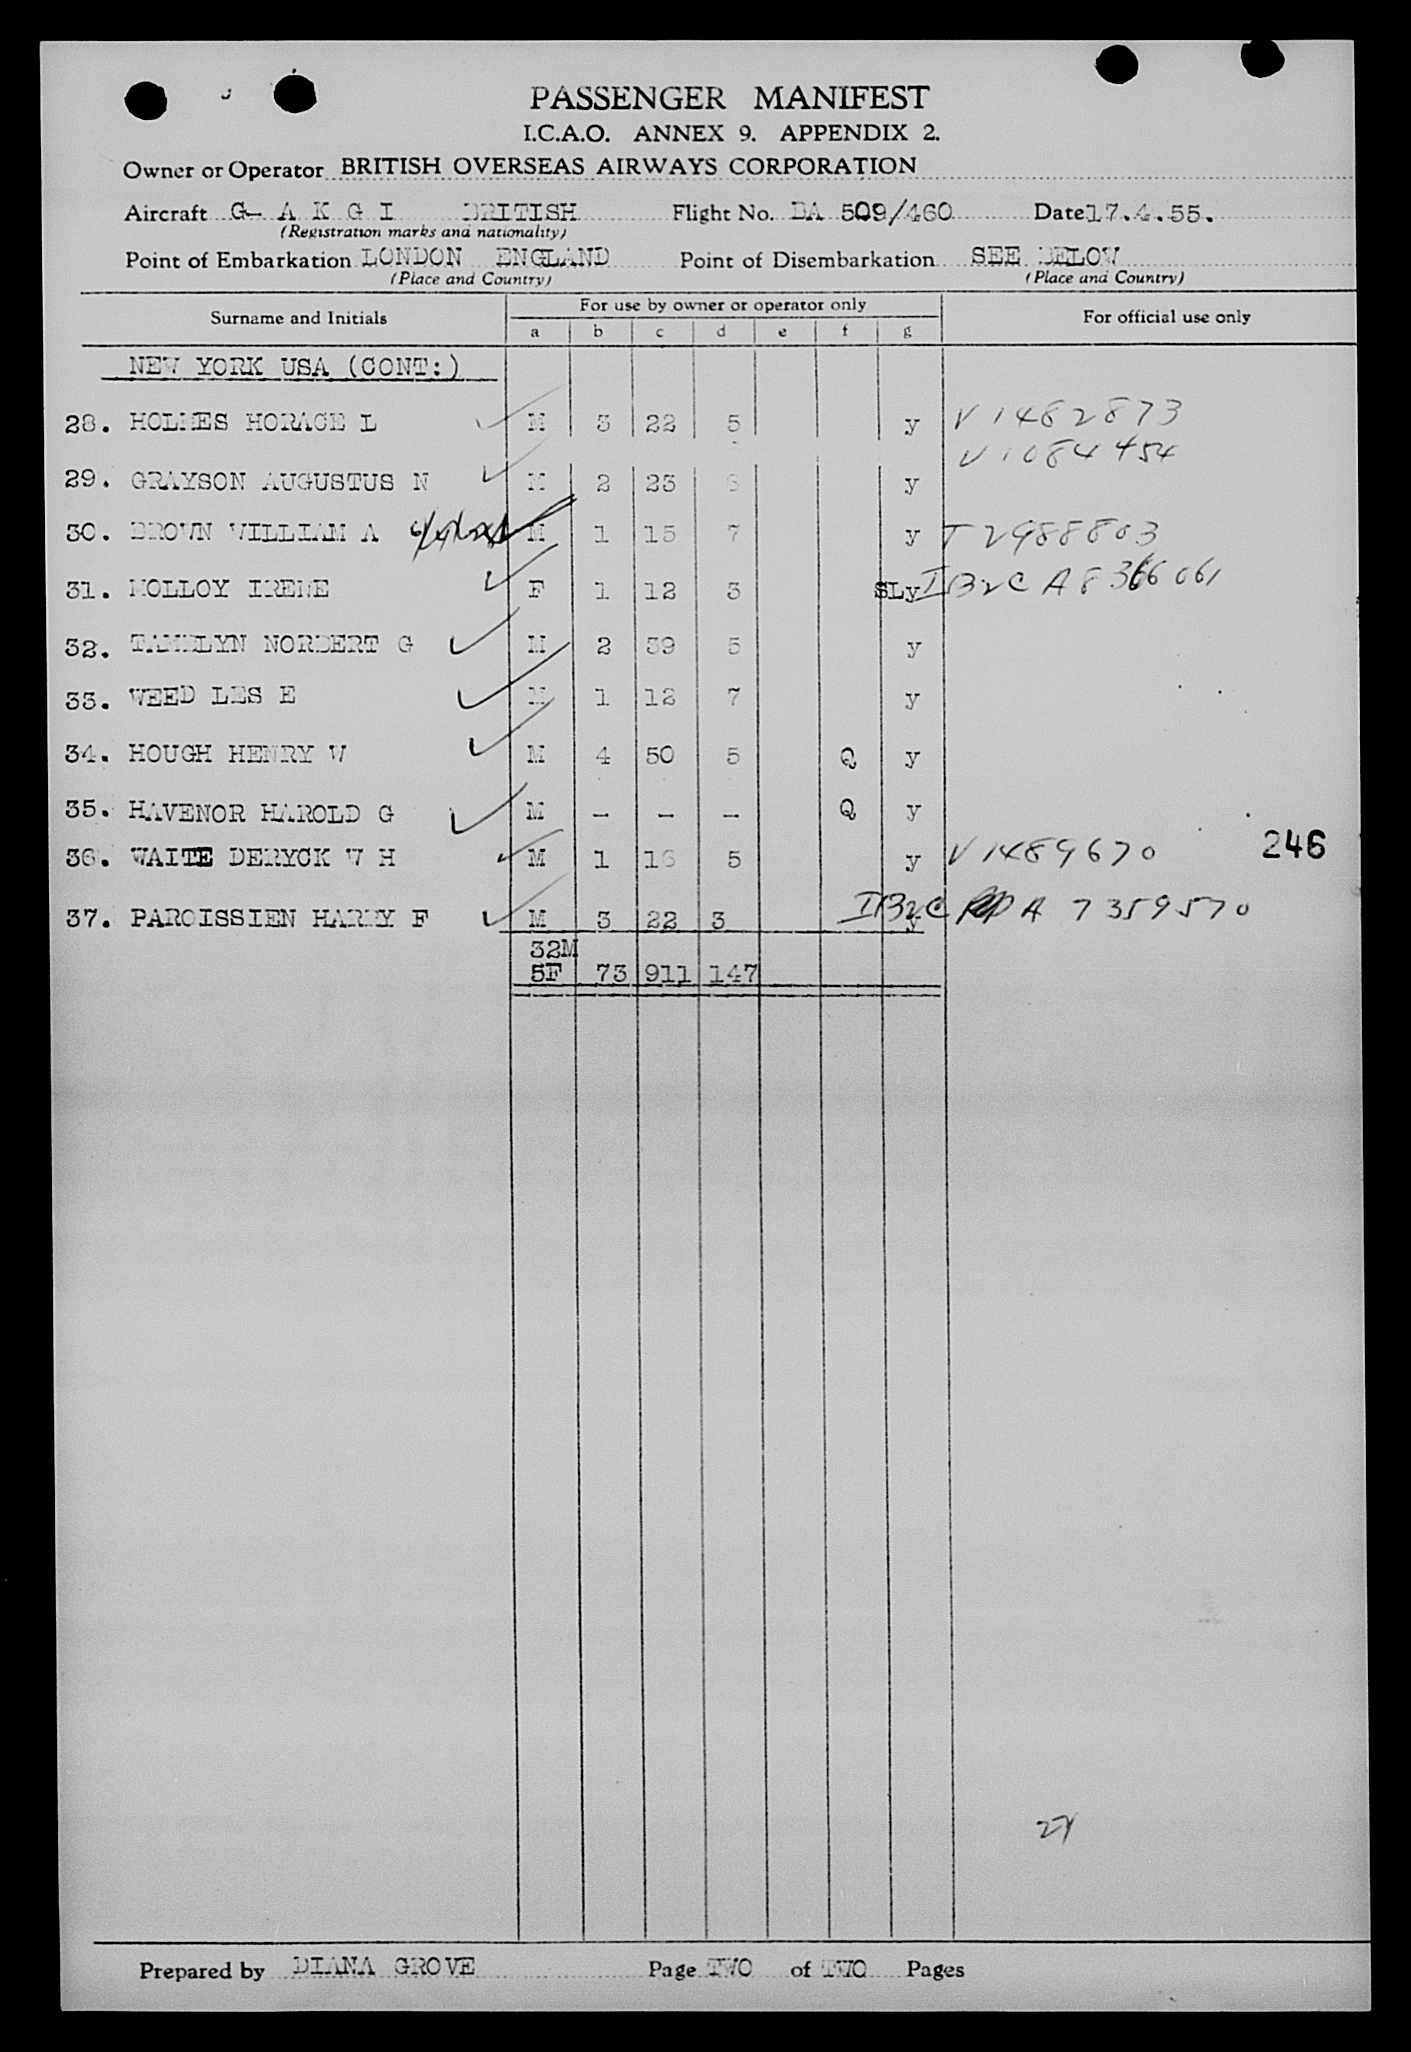 PASSENGER MANIFEST
I.C.A.O. ANNEX 9. APPENDIX 2.
Owner or Operator BRITISH OVERSEAS AIRWAYS CORPORATION
Aircraft G- A K G I BRITISH Flight No. BA 509/460 Date 17.4.55.
(Registration marks and nationality)
Point of Embarkation LONDON ENGLAND Point of Disembarkation SEE BELOW
(Place and Country) (Place and Country)
Surname and Initials For use by owner or operator only For official use only
a b c d e f g
NEW YORK USA (CONT:)
28. HOLMES HORACE L M 3 22 5 y V1482873
V1084454
29. GRAYSON AUGUSTUS N M 2 23 y
30. BROWN WILLIAM A M 1 15 7 y T2988803
31. MOLLOY IRENE F 1 12 3 SLy IB2C A8366061
32. TAMBLYN NORBERT G M 2 39 5 y
33. WEED LES E M 1 12 7 y
34. HOUGH HENRY W M 4 50 5 Q y
35. HAVENOR HAROLD G M - - - Q y
36. WAITE DERYCK W H M 1 16 5 y V1489670 246
37. PAROISSIEN HARRY F M 3 22 3 y IB2C A7359570
32M
5F 73 911 147
Prepared by DIANA GROVE Page TWO of TWO Pages